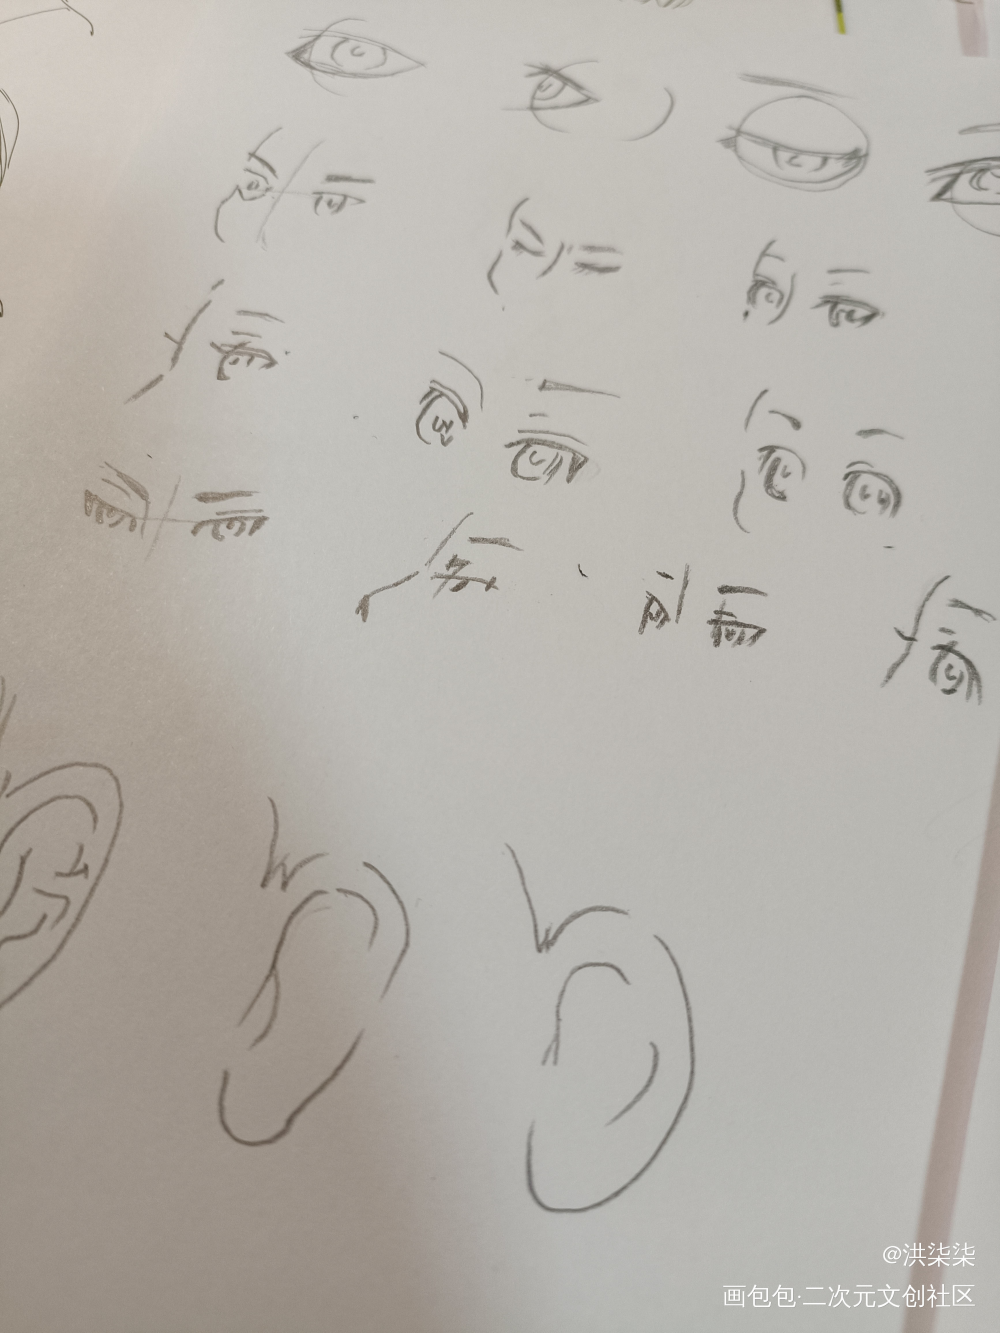 @洪柒柒
画包包·二次元文创社区